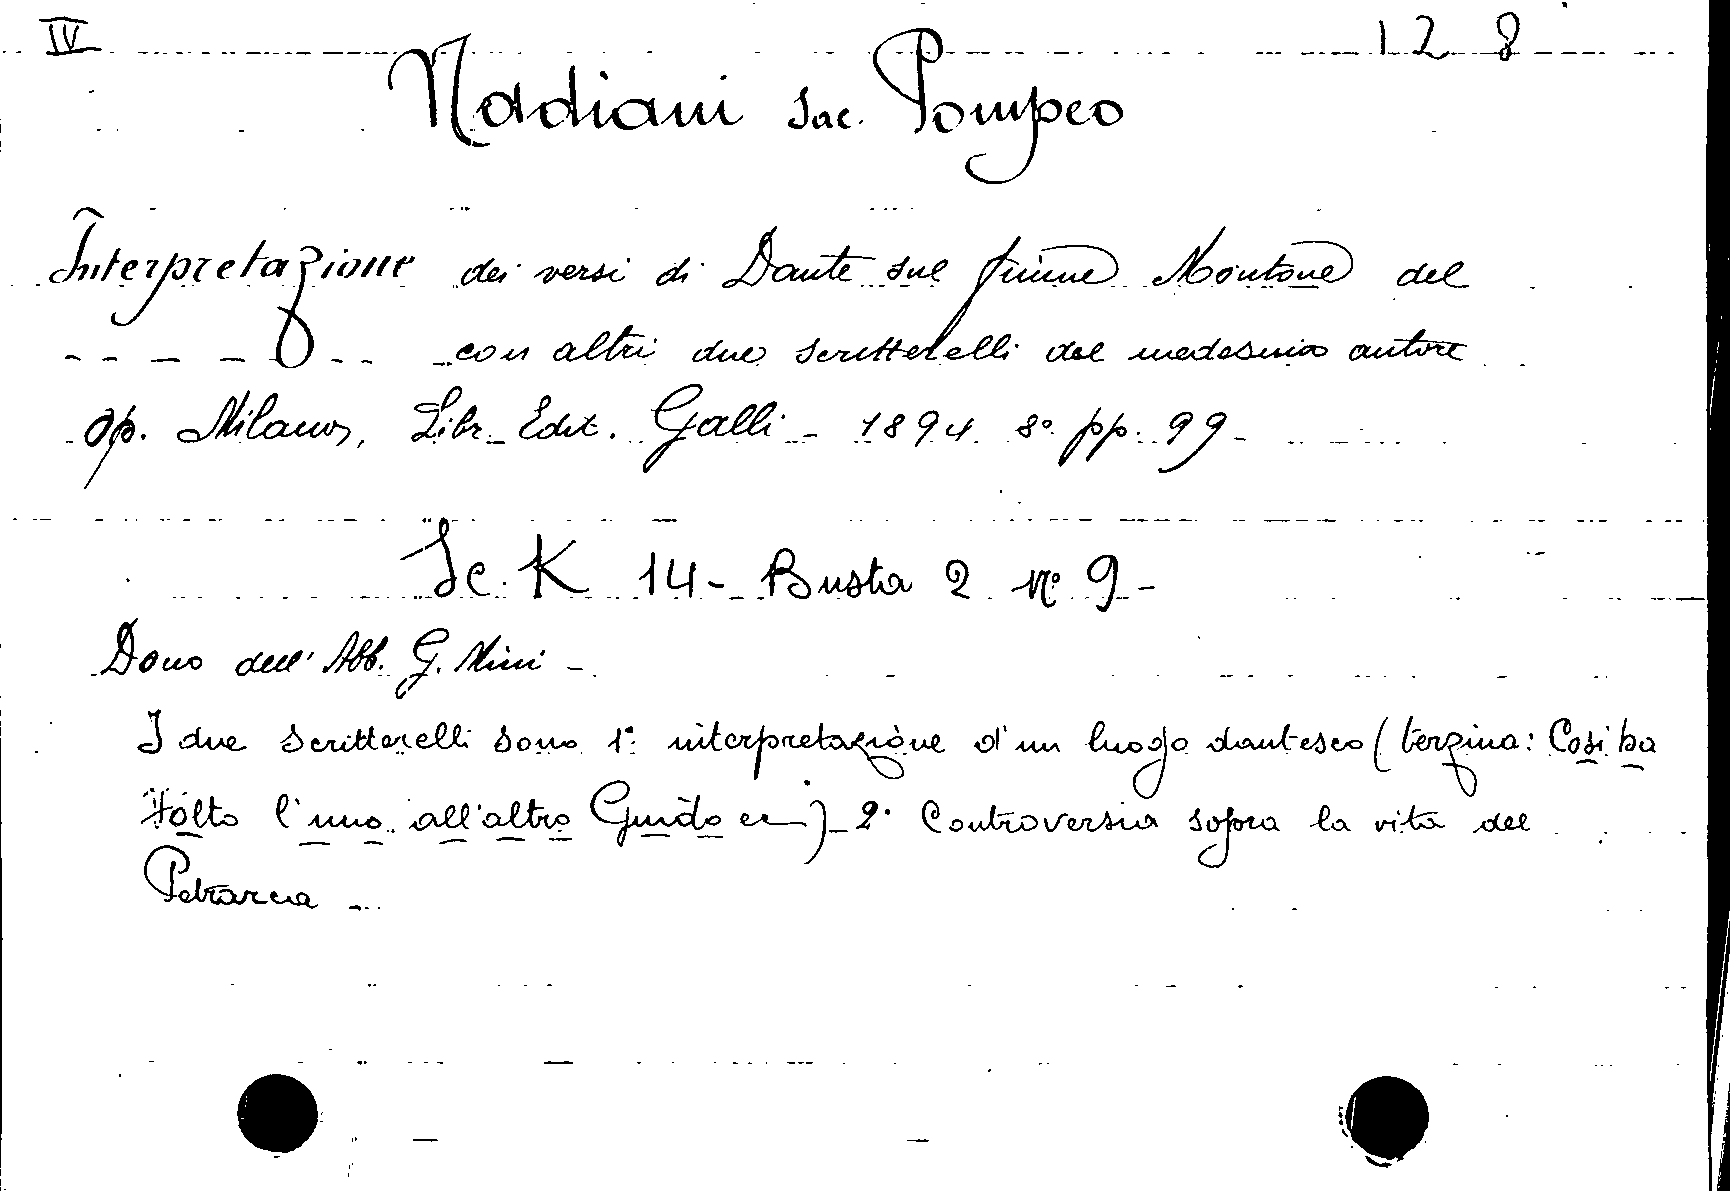 IV 128
Nadiani sac. Pompeo
Interpretazione dei versi di Dante sul fiume Montone del
- - - - - - con altri due scritterelli del medesimo autore
op. Milano, Libr. Edit. Galli - 1894 8° pp. 99 -
Sc. K 14 - Busta 2 N° 9 -
Dono dell' Abb. G. Mini -
I due scritterelli sono 1° interpretazione d'un luogo dantesco (terzina: Così ha
tolto l'uno all'altro Guido ec) - 2° Controversia sopra la vita del
Petrarca -